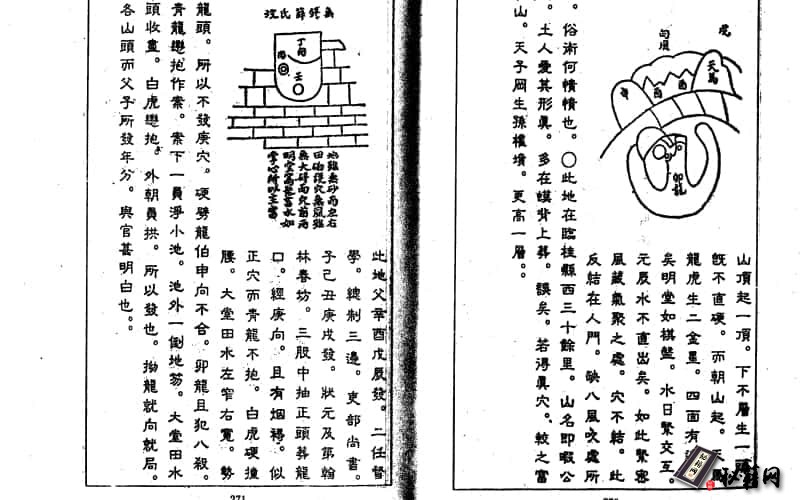 虎
勾風
天馬
酉
酉
辛
卯龍
山頂起一頂。下不層生一
旣不直硬。而朝山起。
龍虎生二金星。四面有
矣明堂如棋盤。水日繁交互。
元辰水不直出矣。如此緊密
風藏氣聚之處。穴不結。此
反結在人門。缺八風吹處所
。俗術何憒憒也。〇此地在臨桂縣西三十餘里。山名即暇公
。土人愛其形真。多在嫫背上葬。誤矣。若得真穴。較之富
山。天子岡生孫權墳。更高一層。
無錫薛氏
丁向
壬
地雖無砂而左右
田
無大碍而穴前兩
明堂寬
此地父辛酉戊辰發。二任督
學。總制三邊。吏部尚書。
子己丑庚戌發。狀元及第翰
林春坊。三股中抽正頭葬龍
口。經庚向。且有烟褥。似
正穴而青龍不抱。白虎硬撞
腰。大堂田水左窄右寬。勢
龍頭。所以不發庚穴。硬劈龍伯申向不合。卯龍且犯八殺。
青龍彎抱作案。案下一員淨小池。池外一倒地笏。大堂田水
頭收盡。白虎彎抱。外朝員拱。所以發也。拗龍就向就局。
各山頭而父子所發年分。與官甚明白也。。
271
秘籍网